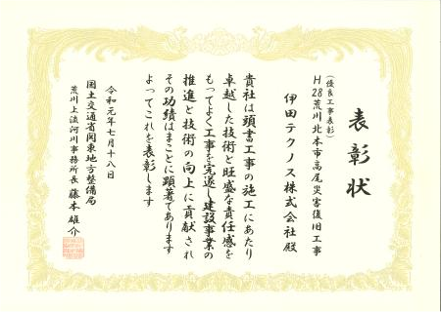 表彰状
(優良工事表彰)
H28荒川北本市高尾災害復旧工事
伊田テクノス株式会社殿
貴社は頭書工事の施工にあたり
卓越した技術と旺盛な責任感を
もってよく工事を完遂し建設事業の
推進と技術の向上に貢献され
その功績はまことに顕著であります
よってこれを表彰します
令和元年七月十八日
国土交通省関東地方整備局
荒川上流河川事務所長 藤本雄介